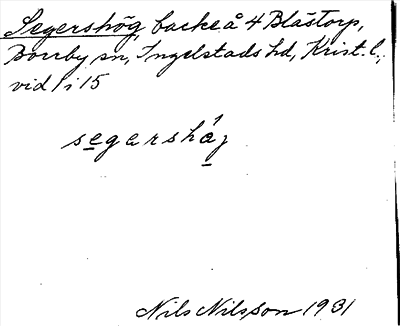 Segershög, backe å 4 Blästorp,
Borrby sn, Ingelstads hd, Krist. l.,
vid 1 i 15
segershåʒ
Nils Nilsson 1931